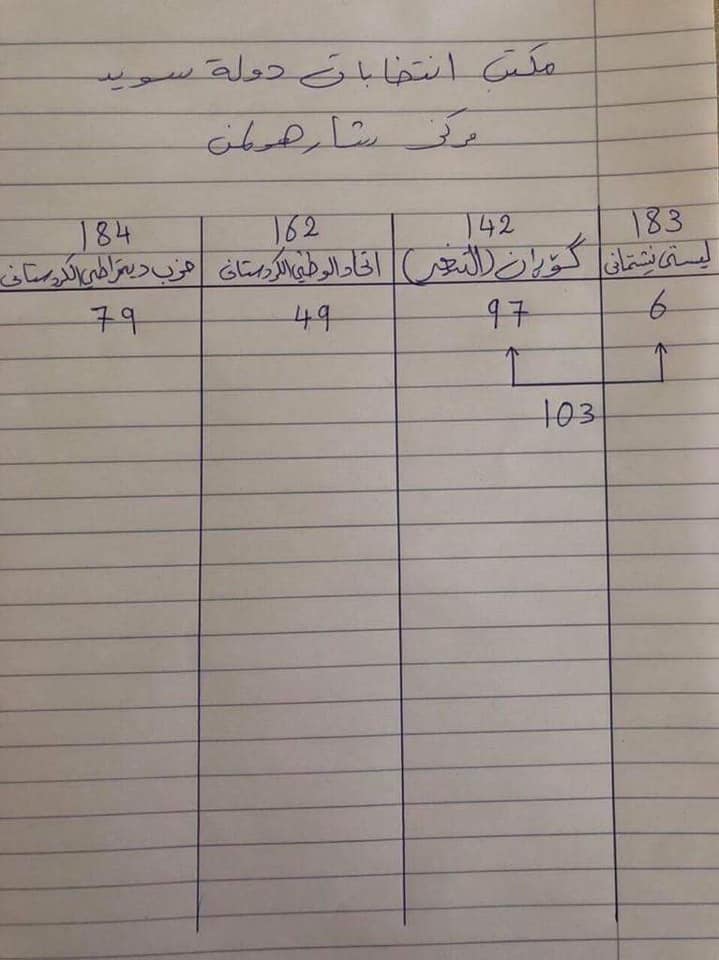 مكتب انتخابات دولة سويد
مركز
183 142 162 184
ليستى نيشتمانى گۆڕان (التغير) اتحاد الوطني الكردستانى حزب ديمقراطي الكردستانى
6 97 49 79
103